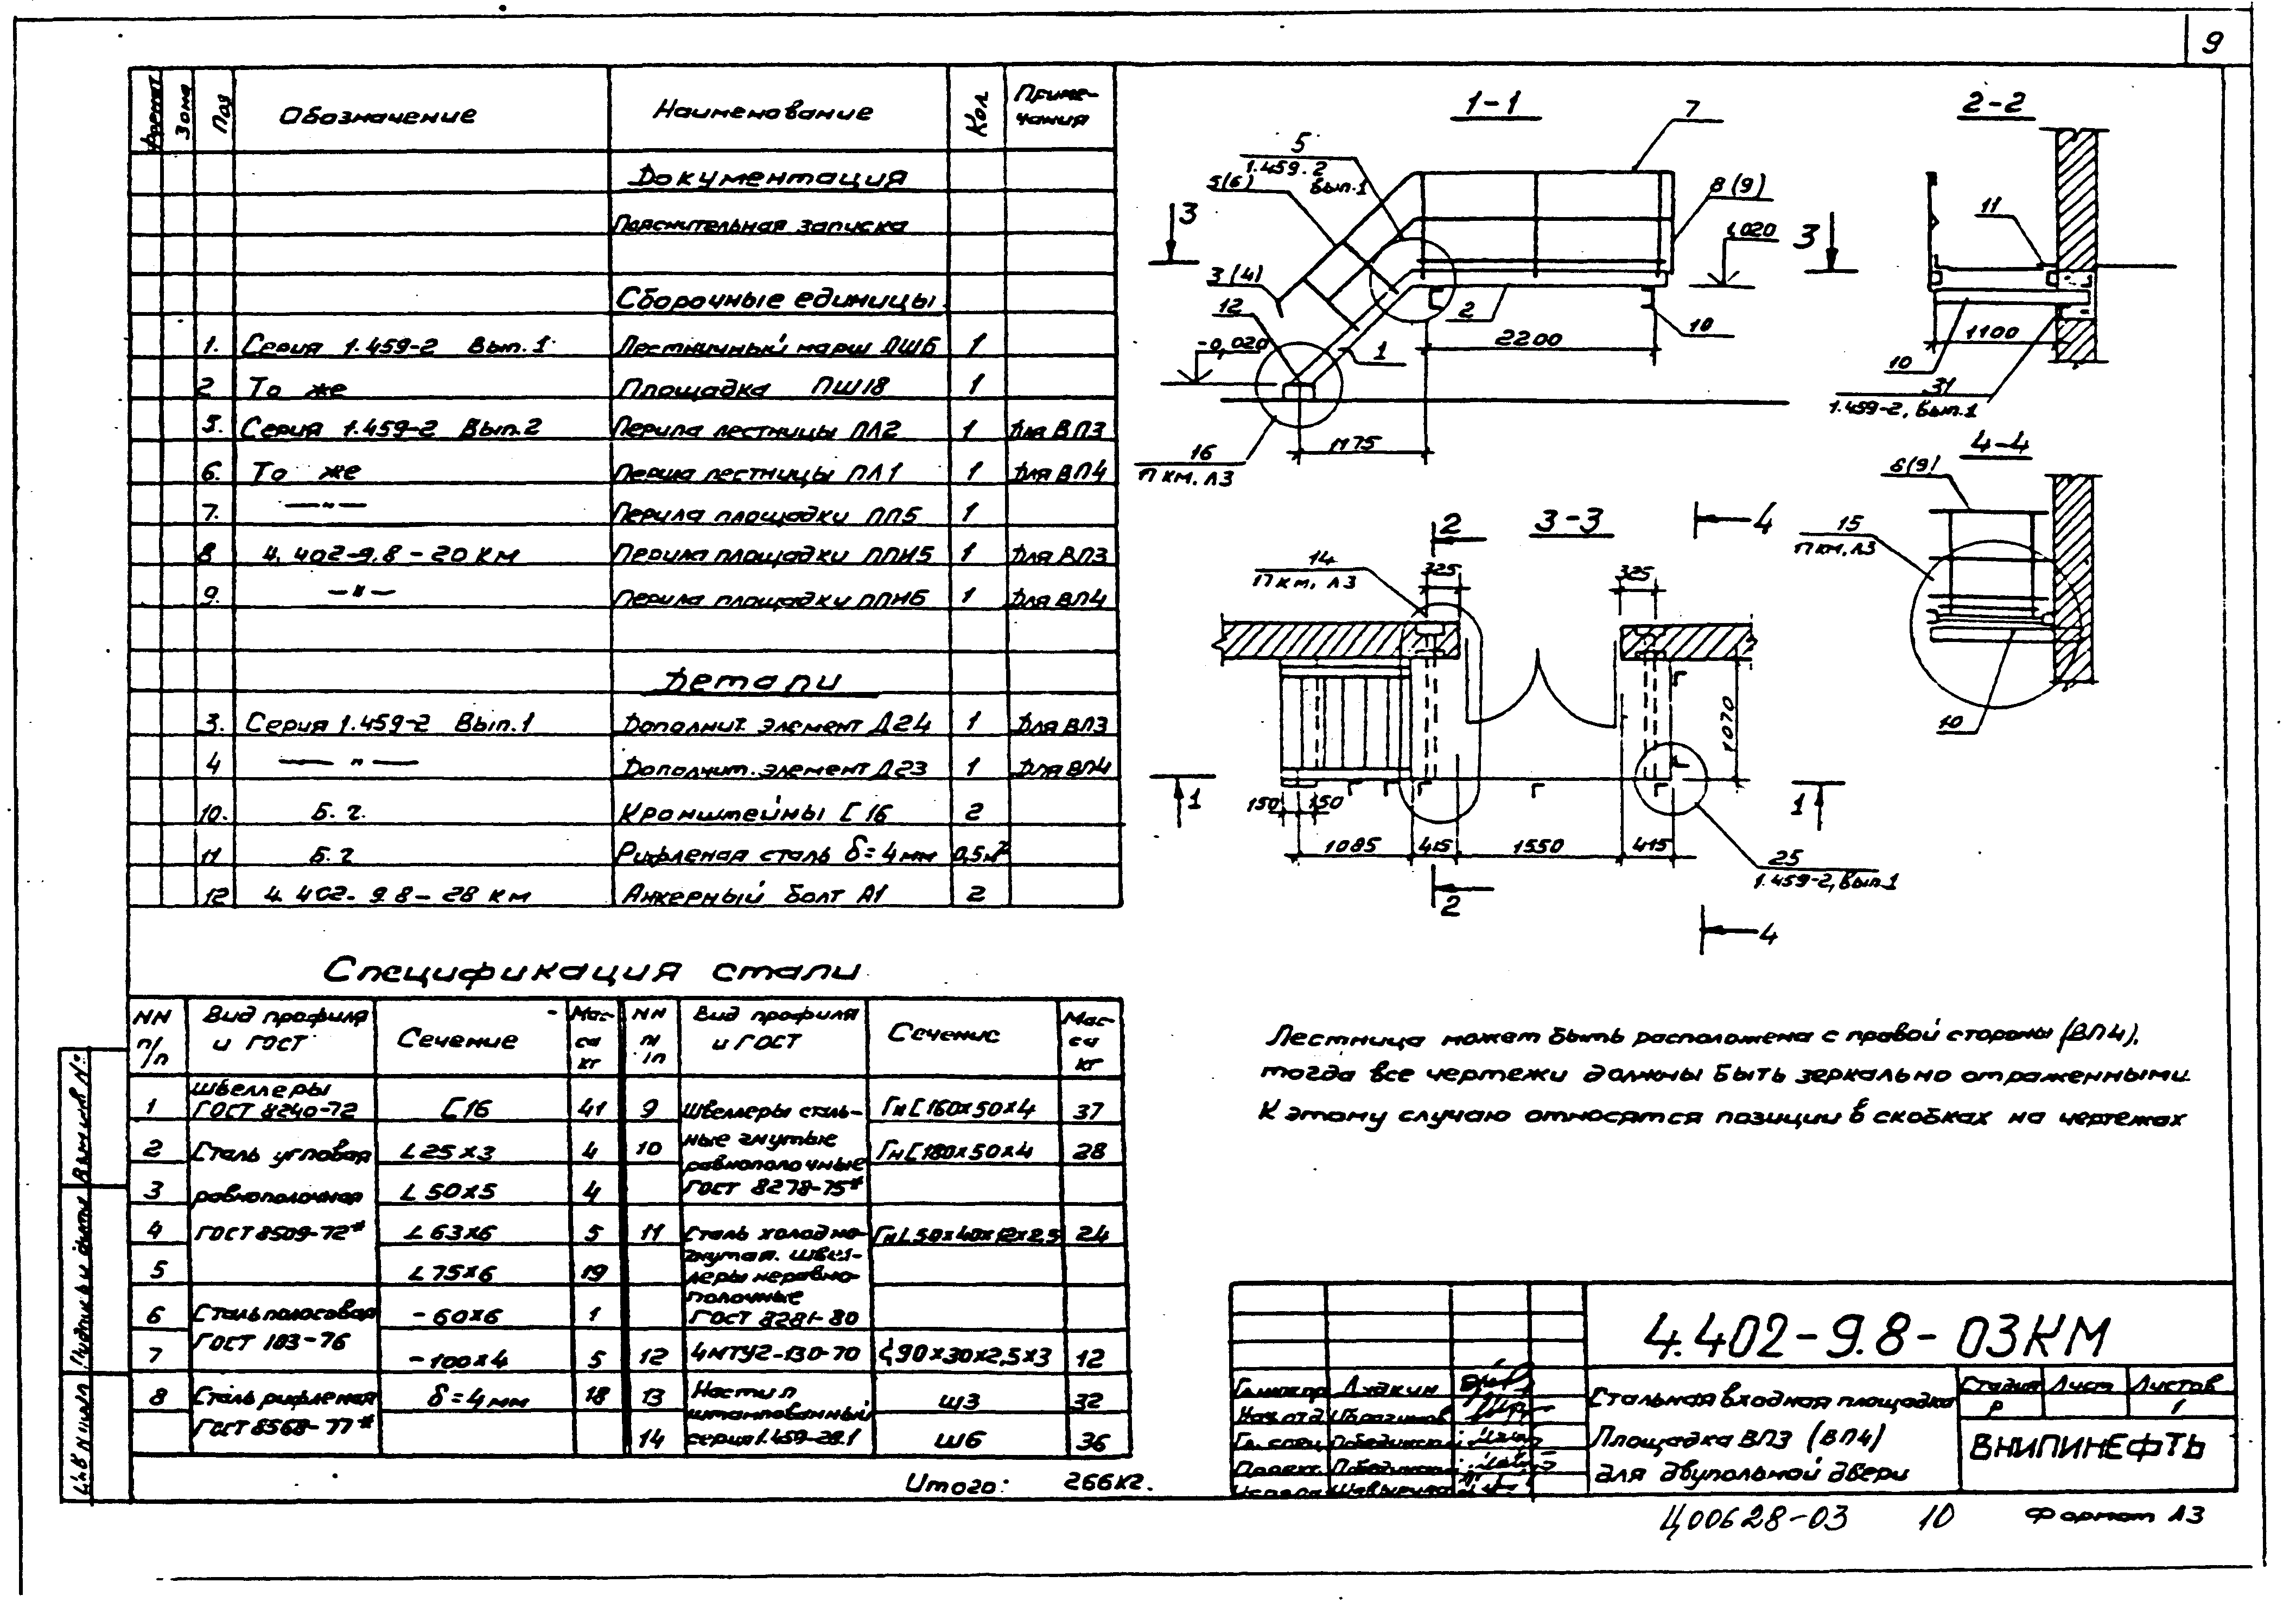 9
Формат Зона Поз Обозначение Наименование Кол Приме-
чания
Документация
Пояснительная записка
Сборочные единицы.
1. Серия 1.459-2 Вып. 1 Лестничный марш ЛШ6 1
2 То же Площадка ПШ18 1
5. Серия 1.459-2 Вып. 2 Перила лестницы ПЛ2 1 Для ВП3
6. То же Перила лестницы ПЛ1 1 Для ВП4
7. —"— Перила площадки ПП5 1
8 4.402-9.8-20 КМ Перила площадки ППН5 1 Для ВП3
9. —"— Перила площадки ППН6 1 Для ВП4
Детали
3. Серия 1.459-2 Вып. 1 Дополнит. элемент Д24 1 Для ВП3
4 —"— Дополнит. элемент Д23 1 Для ВП4
10. Б.г. Кронштейны [16 2
11 Б.г Рифленая сталь δ=4мм 0,5м²
12 4.402-9.8-28 КМ Анкерный болт А1 2
Спецификация стали
NN
п/п
Вид профиля
и ГОСТ
Сечение
Мас-
са
кг
NN
п/п
Вид профиля
и ГОСТ
Сечение
Мас-
са
кг
1 Швеллеры
ГОСТ 8240-72 [16 41
2 Сталь угловая L25×3 4
3 равнополочная L50×5 4
4 ГОСТ 8509-72* L63×6 5
5 L75×6 19
6 Сталь полосовая -60×6 1
ГОСТ 103-76
7 -100×4 5
8 Сталь рифленая δ=4мм 18
ГОСТ 8568-77*
9 Швеллеры сталь- Гн[160×50×4 37
10 ные гнутые Гн[180×50×4 28
равнополочные
ГОСТ 8278-75*
11 Сталь холодно- ГнL50×40×12×2,5 24
гнутая. Швел-
леры неравно-
полочные
ГОСТ 8281-80
12 4МТУ2-130-70 90×30×2,5×3 12
13 Настил Ш3 32
штампованный
14 серия 1.459-2в.1 Ш6 36
Итого: 266кг.
1-1
7
5
1.459-2
Вып. 1
5(6)
8(9)
3
3
1,020
3(4)
12
2
10
-0,020
2200
1
1175
16
ПКМ, л3
2-2
11
1100
10
31
1.459-2, Вып. 1
4-4
8(9)
15
ПКМ, л3
10
10
3-3
2
4
14
ПКМ, л3
325
325
1070
1
1
150
150
1085
415
1550
415
25
1.459-2, Вып. 1
2
4
Лестница может быть расположена с правой стороны (ВП4),
тогда все чертежи должны быть зеркально отраженными.
К этому случаю относятся позиции в скобках на чертежах
4.402-9.8-03КМ
Стальная входная площадка
Площадка ВП3 (ВП4)
для двупольной двери
Стадия Лист Листов
Р 1
ВНИПИНЕФТЬ
Нач. отд
Гл. спец
Проект.
Ц00628-03 10 Формат А3